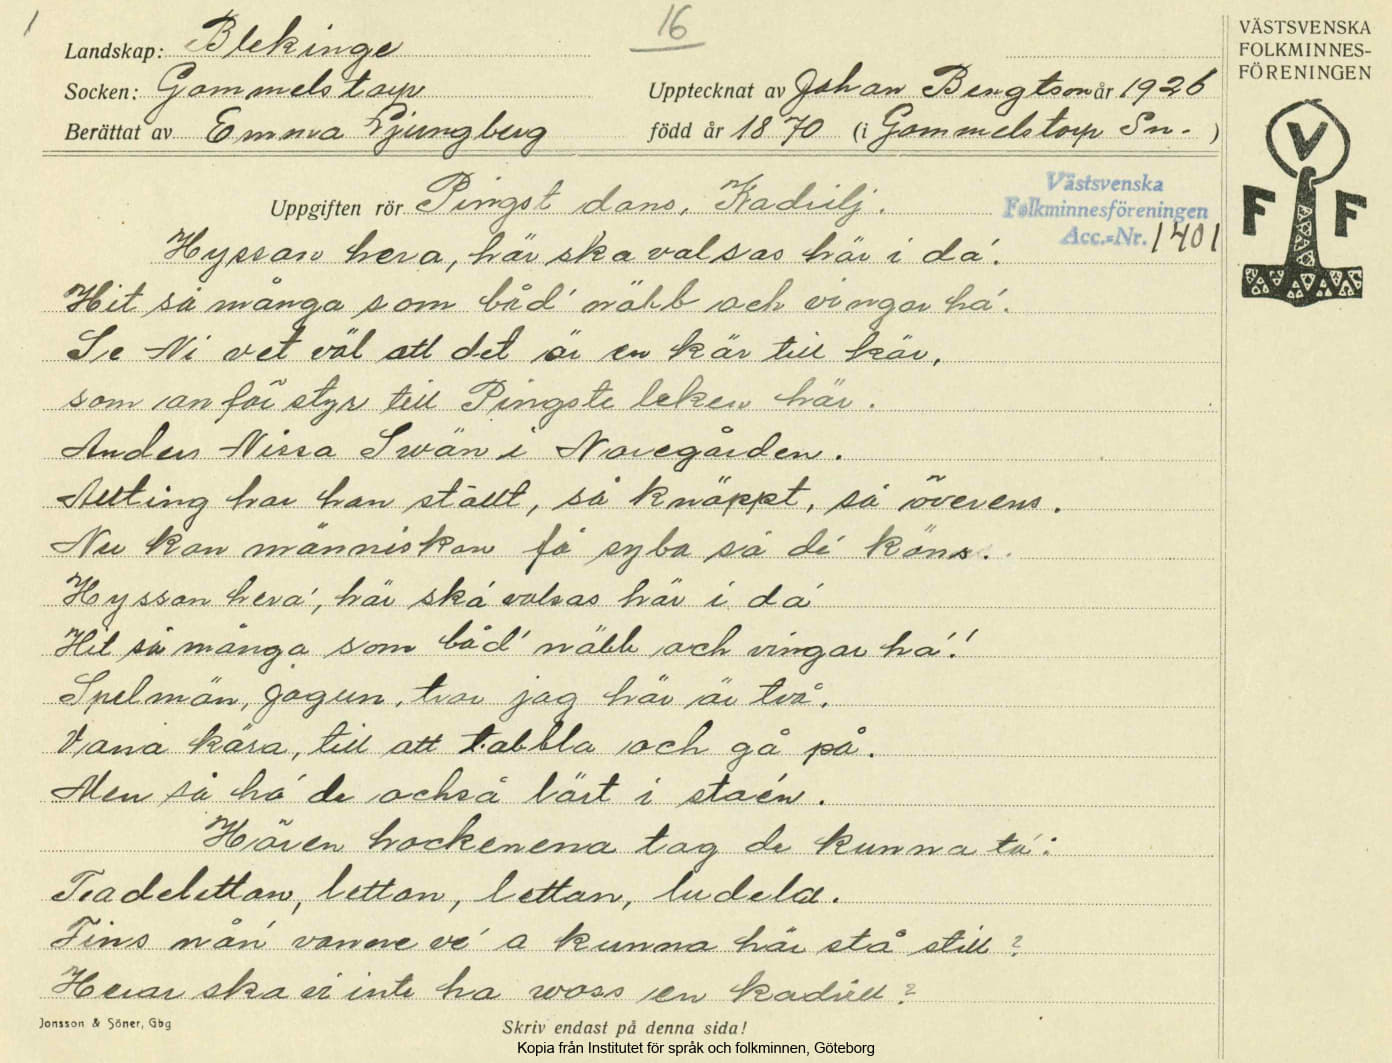 1
16
Landskap: Blekinge
Socken: Gammelstorp Upptecknat av Johan Bengtson år 1926
Berättat av Emma Ljungberg född år 1870 (i Gammelstorp Sn. )
VÄSTSVENSKA
FOLKMINNES-
FÖRENINGEN
V
F F
Uppgiften rör Pingst dans, Kadrilj.
Västsvenska
Folkminnesföreningen
Acc.=Nr. 1401
Hyssan hera, här ska valsas här i da'.
Hit så många som båd' näbb och vingar ha'.
Se Ni vet väl att det är en kär till kär,
som anför styr till Pingste leken här.
Anders Nissa Swän i Norregården.
Allting har han ställt, så knäppt, så överens.
Nu kan människan få sylta så de' käns.
Hyssan hera', här ska' valsas här i da'
Hit så många som båd' näbb och vingar ha'!
Spelmän, jagun, tror jag här är två.
Vana kära, till att tabbla och gå på.
Men så ha' de också lärt i sta'en.
Hören hockenena tag de kunna ta':
Tradelittan, lettan, lettan, ludela.
Fins nån' vanne ve' a kunna här stå still?
Herrar ska vi inte ha woss en kadrill?
Jonsson & Söner, Gbg
Skriv endast på denna sida!
Kopia från Institutet för språk och folkminnen, Göteborg